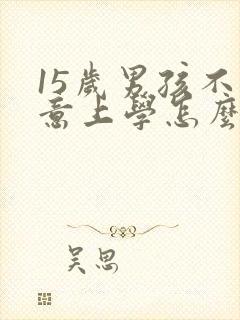 15歲男孩不
意上學怎麼
吳思